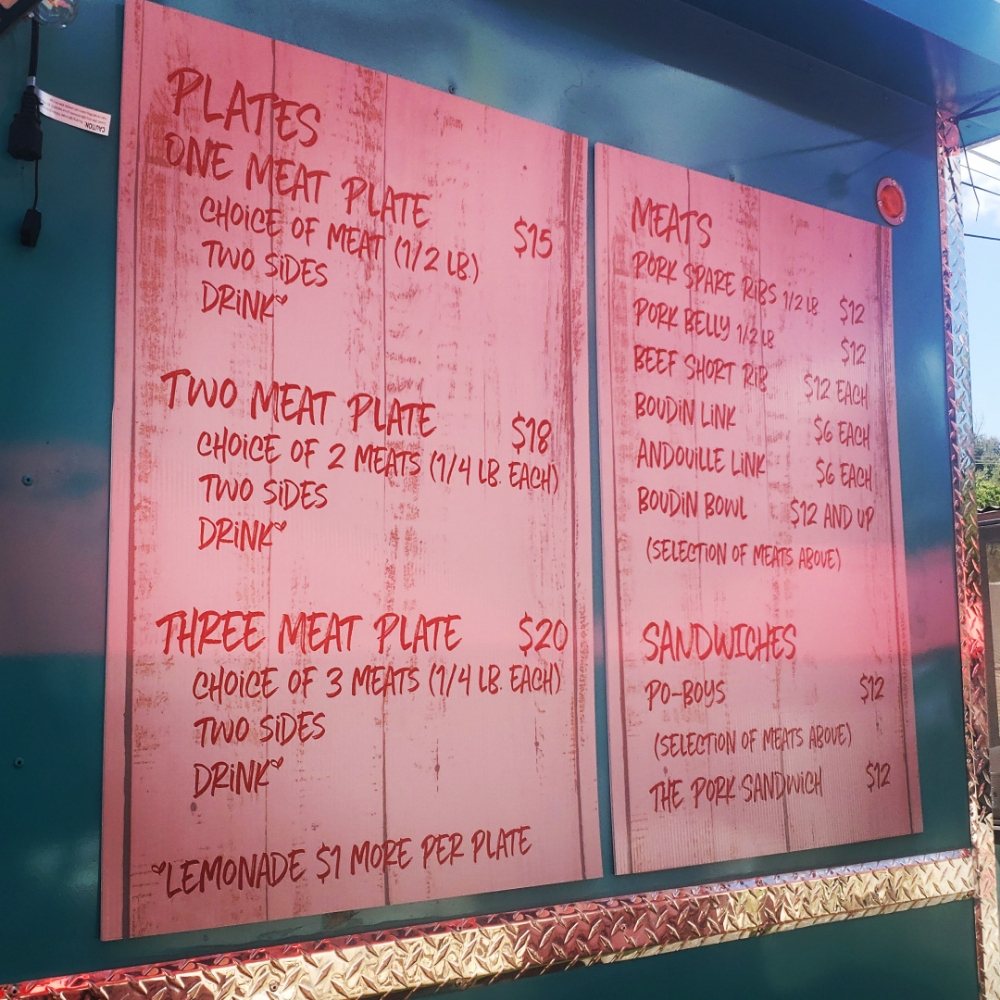 PLATES
ONE MEAT PLATE $15
CHOICE OF MEAT (1/2 LB.)
TWO SIDES
DRINK
TWO MEAT PLATE $18
CHOICE OF 2 MEATS (1/4 LB. EACH)
TWO SIDES
DRINK
THREE MEAT PLATE $20
CHOICE OF 3 MEATS (1/4 LB. EACH)
TWO SIDES
DRINK
LEMONADE $1 MORE PER PLATE
MEATS
PORK SPARE RIBS 1/2 LB $12
PORK BELLY 1/2 LB $12
BEEF SHORT RIB $12 EACH
BOUDIN LINK $6 EACH
ANDOUILLE LINK $6 EACH
BOUDIN BOWL $12 AND UP
(SELECTION OF MEATS ABOVE)
SANDWICHES
PO-BOYS $12
(SELECTION OF MEATS ABOVE)
THE PORK SANDWICH $12
CAUTION